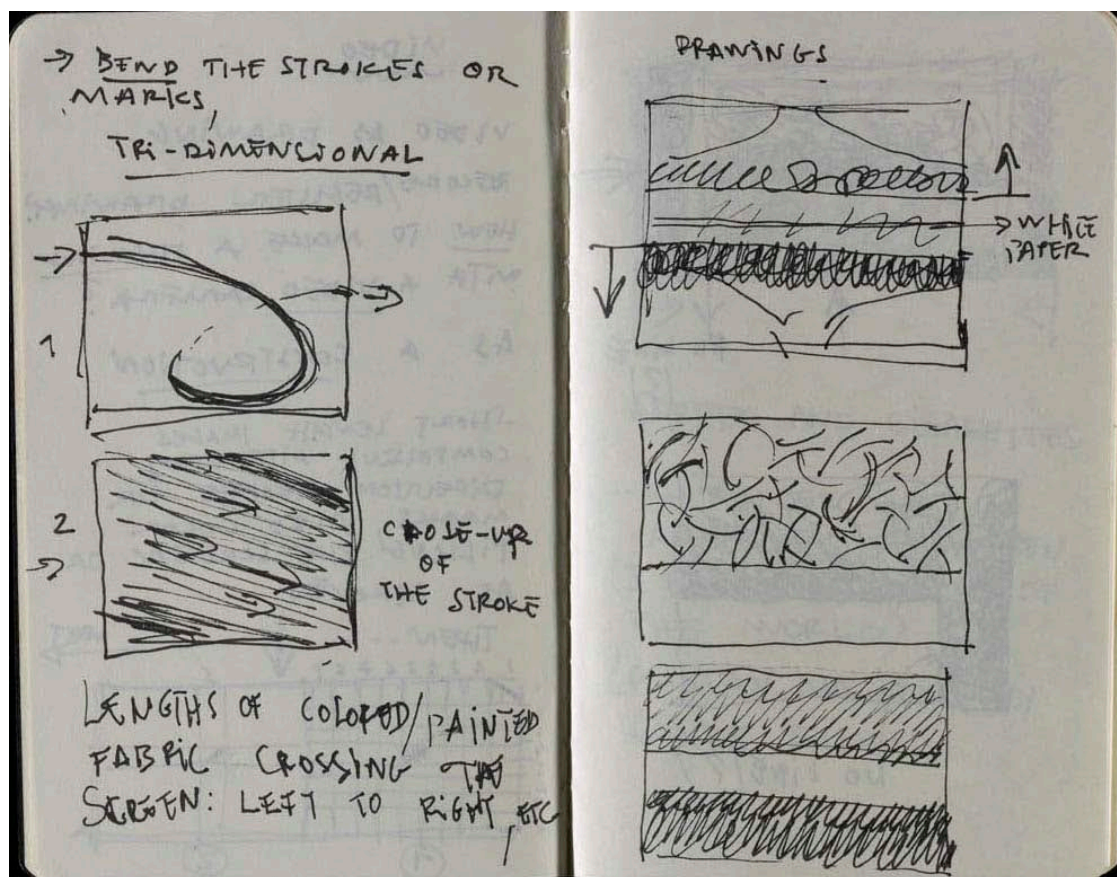 → BEND THE STROKES OR
MARKS,
TRI-DIMENSIONAL
1
2
CLOSE-UP
OF
THE STROKE
LENGTHS OF COLORED/PAINTED
FABRIC CROSSING THE
SCREEN: LEFT TO RIGHT, ETC
DRAWINGS
WHITE
PAPER